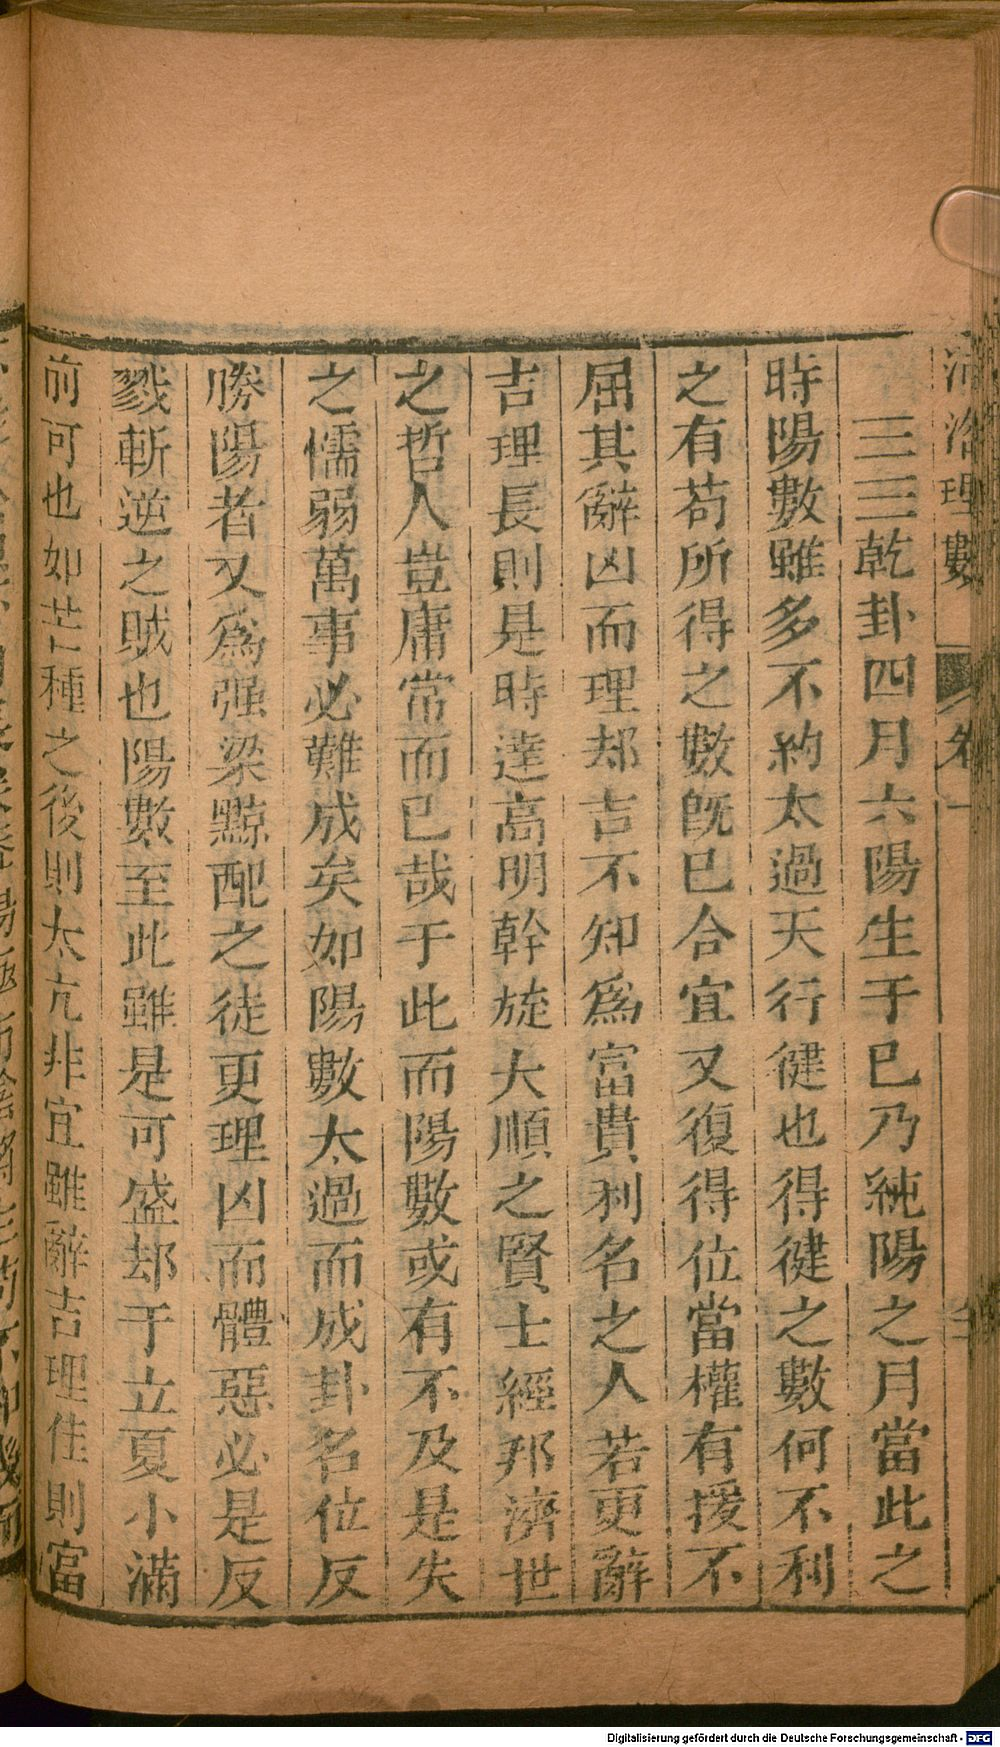 理數 卷一
三三乾卦四月六陽生于巳乃純陽之月當此之
時陽數雖多不約太過天行徤也得徤之數何不利
之有苟所得之數旣已合宜又復得位當權有援不
屈其辭凶而理却吉不知爲富貴利名之人若更辭
吉理長則是時達高明幹旋大順之賢士經邦濟世
之哲人豈庸常而已哉于此而陽數或有不及是失
之懦弱萬事必難成矣如陽數太過而成卦名位反
勝陽者又爲强梁黥配之徒更理凶而體惡必是反
戮斬逆之賊也陽數至此雖是可盛却于立夏小滿
前可也如芒種之後則太亢非宜雖辭吉理佳則富
Digitalisierung gefördert durch die Deutsche Forschungsgemeinschaft - DFG